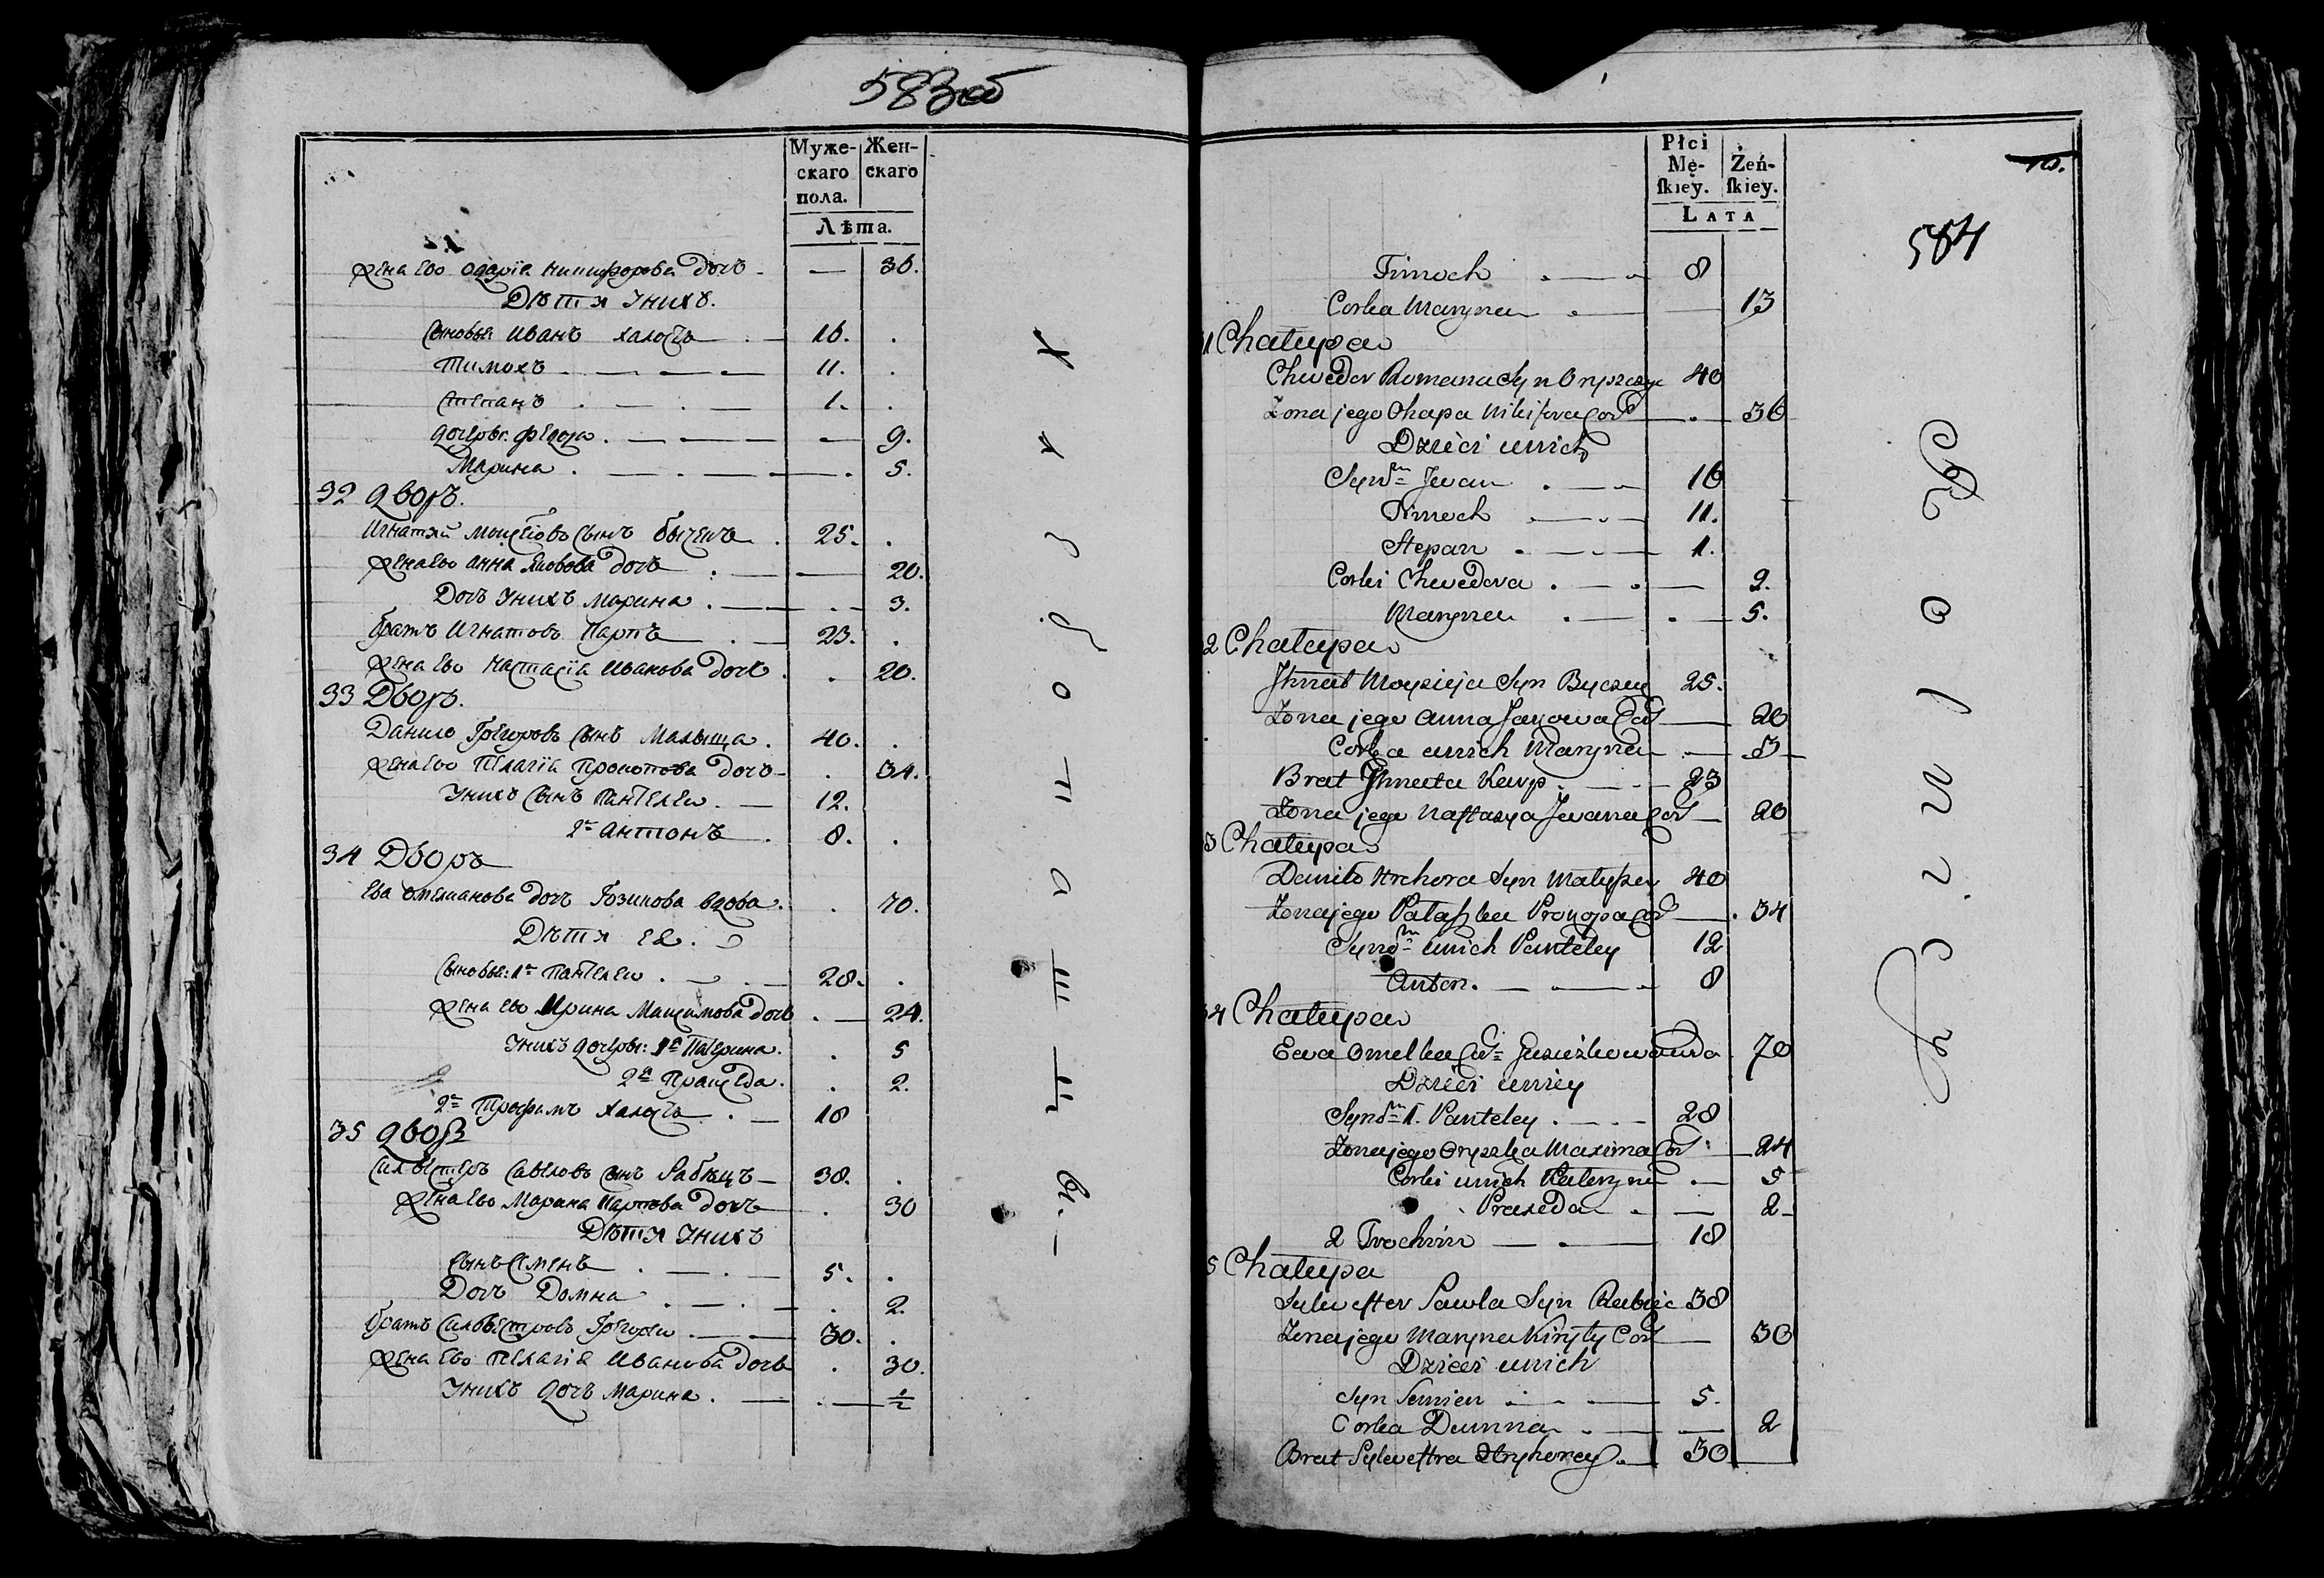 583об
Муже- Жен-
скаго скаго
пола.
Лѣта.
жена ево одарїа никифорова дочъ — 36.
Дѣти Унихъ.
Сыновья Иванъ халостъ 16.
Тимохъ 11.
Степанъ 1.
дочеры: Федора 9.
Марина 5.
32 дворъ.
Игнатий Моисеювъ сынъ 25.
жена ево анна дочъ 20.
Дочъ Унихъ Марина 3.
братъ Игнатовъ Карпъ 23.
жена ево Настасїа Иванова дочъ 20.
33 Дворъ.
Данило Григоровъ сынъ Малыша 40.
жена ево Пелагїа Прокопова дочъ 34.
Унихъ сынъ Пантелеи 12.
2й антонъ 8.
34 Дворъ
Ева омелианова дочъ вдова 70.
Дѣти ея.
Сыновья: 1й Пантелеи 28.
жена ево Ирина Максимова дочъ 24.
Унихъ дочеры: 1я Катерина 5
2я Праседа 2.
2й Трофимъ халостъ 18
35 дворъ
Силвестеръ Савловъ сынъ Рабецъ 38.
жена ево Марина дочъ 30
Дѣти Унихъ
Сынъ Семенъ 5.
Дочъ Домна 2.
братъ Силвестровъ Григореи 30.
жена ево Пелагїя Иванова дочъ 30.
Унихъ дочъ Марина ½
Хлѣбопашцы.
Płci
Mę- Żeń-
ſkiey. ſkiey.
Lata
10.
584
Timoch 8
Corka Maryna 13
1 Chałupa
Chwedor Romana Syn 40
Zona jego Ohapa Nikifora Cor 36
Dzieci unich
Synów Jwan 16
Timoch 11.
Stepan 1.
Corki Chwedora 9.
Maryna 5.
2 Chałupa
Jhnat Moysieja Syn Byczek 25.
Zona jego Anna Jakowa Cor 20
Corka unich Maryna 3
Brat Jhnata Karp 23
Zona jego Naſtazya Jwana Cor 20
3 Chałupa
Daniło Hrehora Syn Małysza 40
Zona jego Pałaſzka Prokopa Cor 34
Synów unich Panteley 12
Anton 8
34 Chałupa
Ewa Omelka Cor 70
Dzieci uniey
Synów 1. Panteley 28
Zona jego Oryszka Maxima Cor 24
Corki unich Kateryna 5
Praxeda 2
2 Trochim 18
5 Chałupa
Sylweſter Pawla Syn Rabiec 38
Zona jego Maryna Kiryły Cor 30
Dzieci unich
Syn Semien 5.
Corka Dumna 2
Brat Sylweſtra Hryhorey 30
Rolnicy